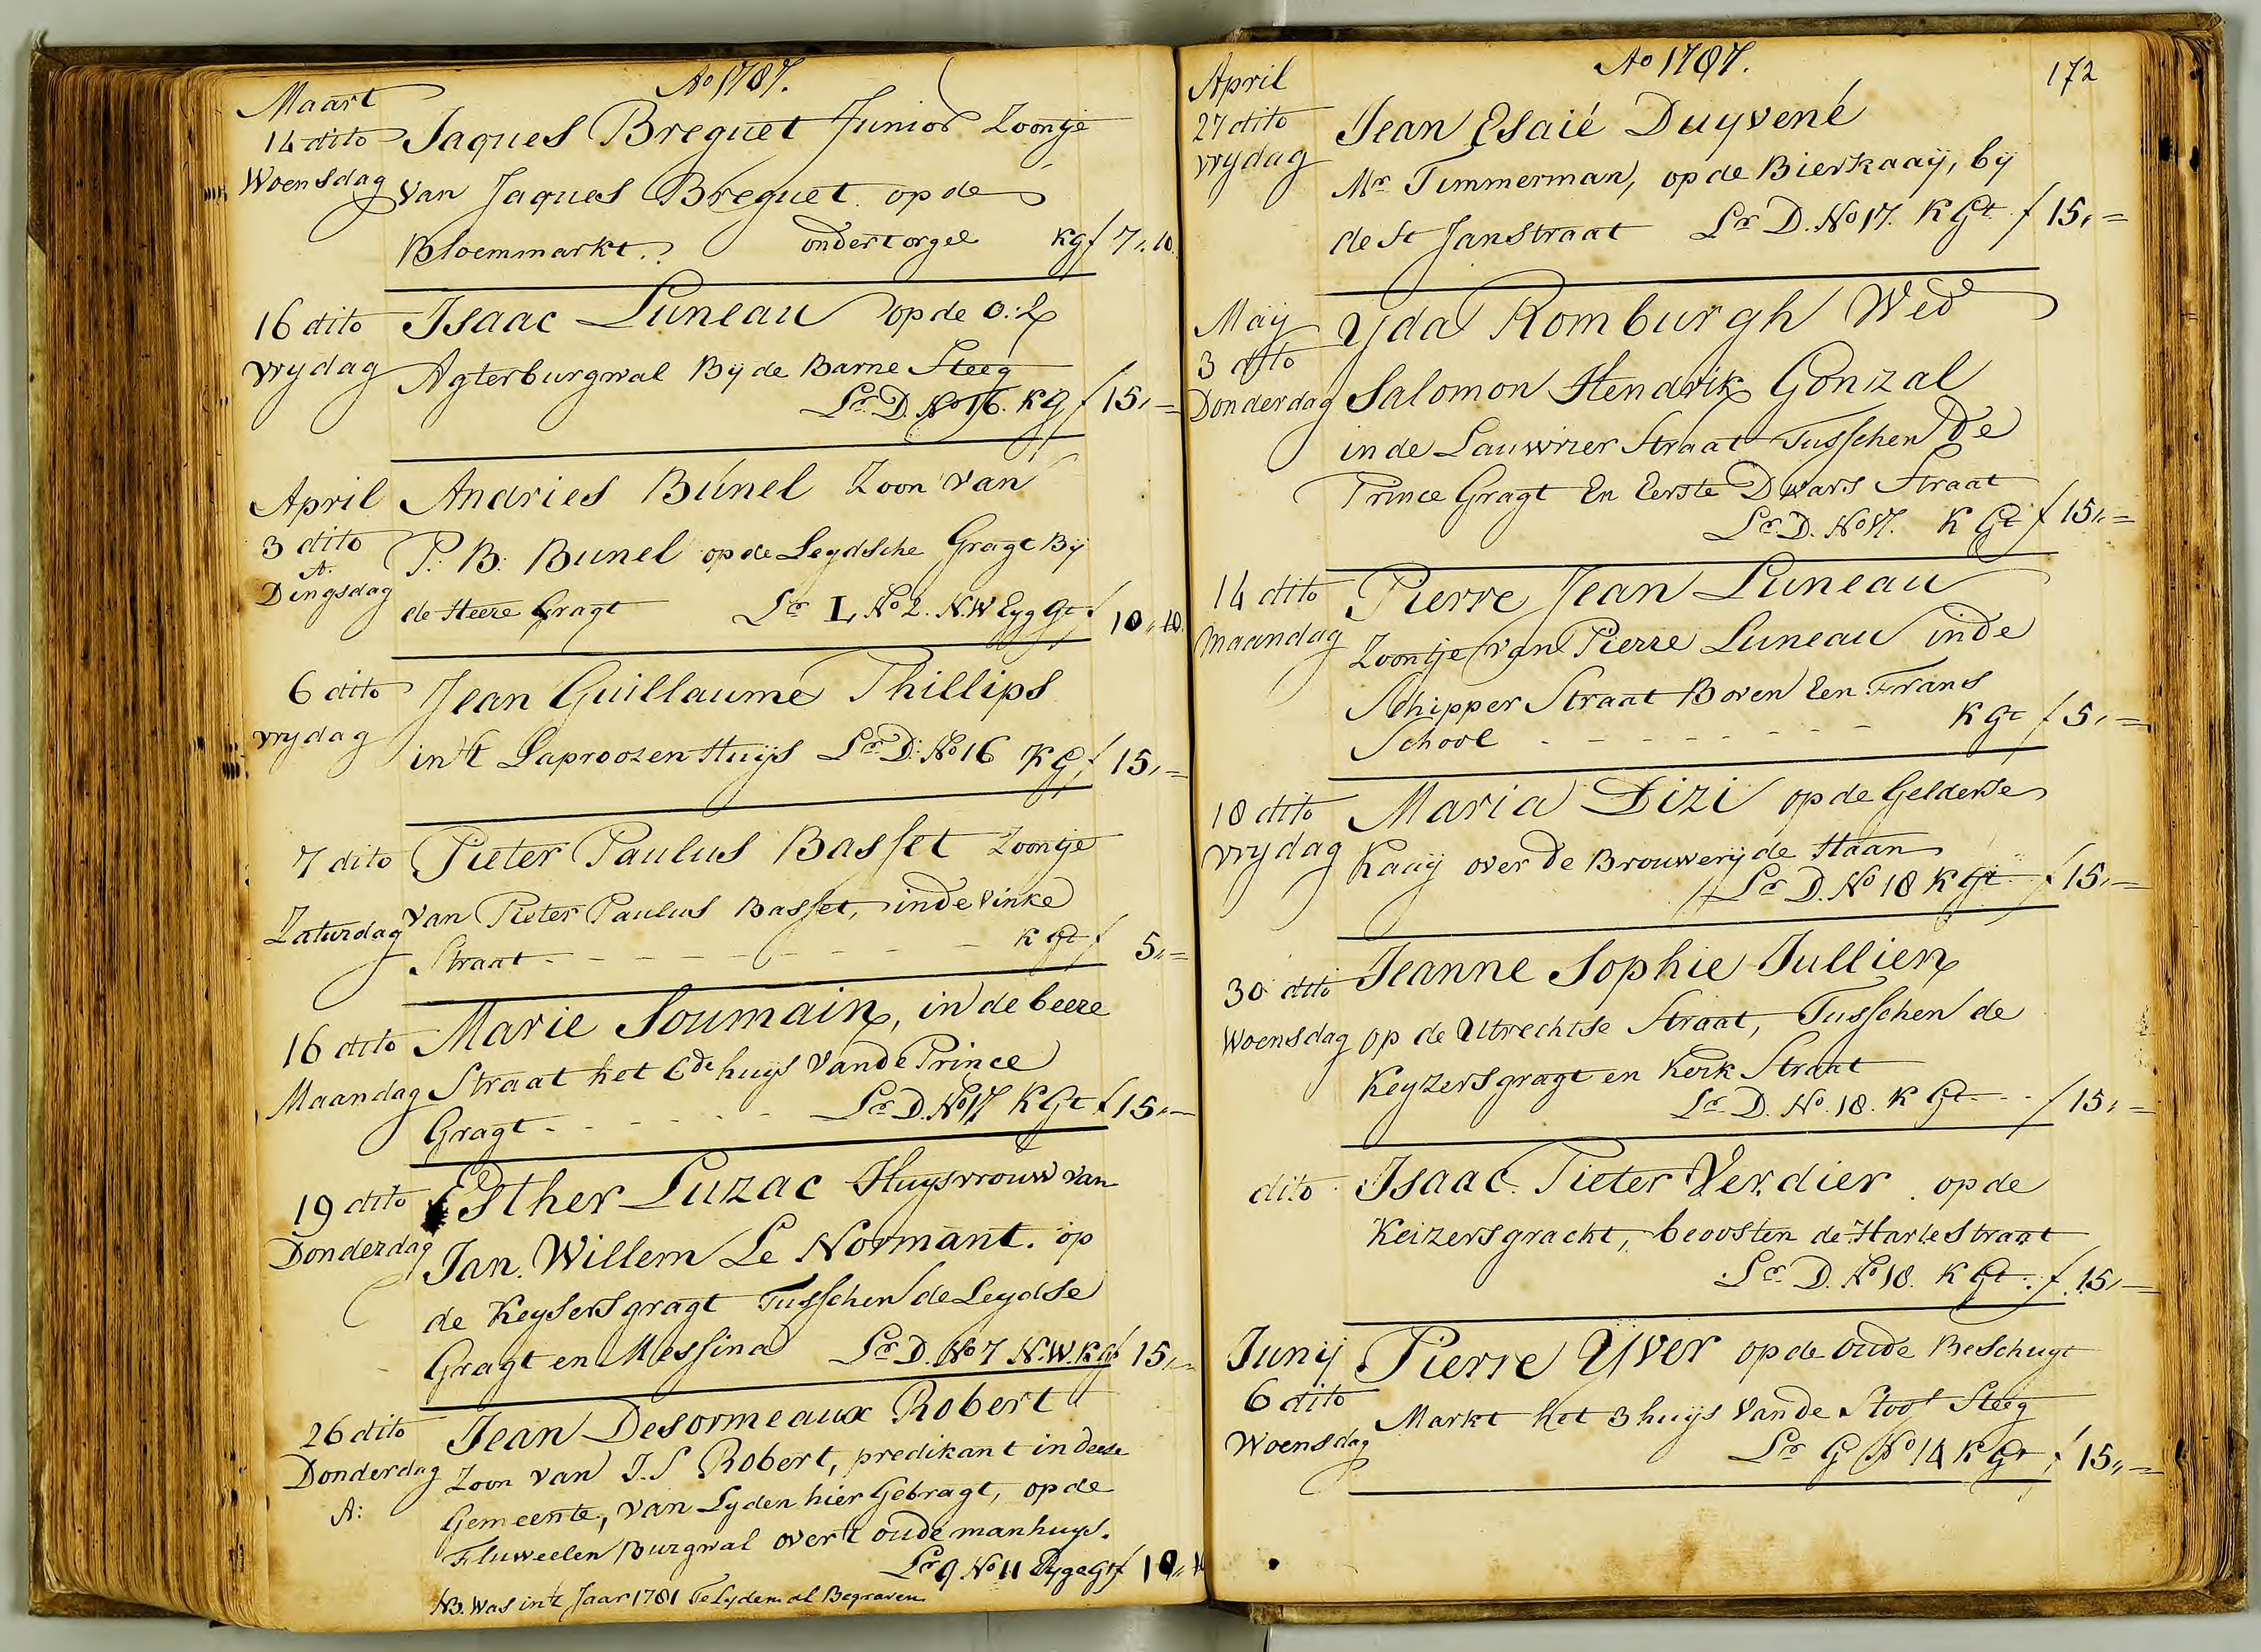 Ao 1787.
Maart
14 dito Jaques Breguet Junior Zoontje
Woensdag van Jaques Breguet op de
Bloemmarkt. ondert orgel kg f 7,,10
16 dito Isaac Luneau op de O:Z
vrydag Agterburgwal By de Barne Steeg
Lr. D. No 16. KG f 15,,=
April Andries Bunel Zoon van
3 dito P. B. Bunel op de Leydsche Gragt By
A.
Dingsdag de Heere Gragt Lr L, No 2. N.W Eyg Gt f 10,,10
6 dito Jean Guillaume Phillips
vrydag in't Laproozen Huys Lr D. No 16 KG f 15,,=
7 dito Pieter Paulus Basset Zoontje
Zaturdag van Pieter Paulus Basset, inde Vinke
Straat - - - - - - K Gt f 5,,=
16 dito Marie Soumain, in de beere
Maandag Straat het 6de huys vande Prince
Gragt - - - - Lr D. No 17 K Gt f 15,,=
19 dito Esther Luzac Huysvrouw van
Donderdag Jan Willem Le Normant. op
de Keysersgragt Tusschen de Leydse
Gragt en Messina Lr D. No 7 N.W. K Gt f 15,,=
26 dito Jean Desormeaux Robert
Donderdag Zoon van J. S Robert, predikant in deese
A: Gemeente, van Lyden hier Gebragt, op de
Fluweelen Burgwal over't oude manhuys.
Lr Q No 11 Eyge Gt f 10,,
NB. Was in't Jaar 1781 Te Lyden al Begraven
Ao 1787.
172
April
27 dito Jean Esaié Duyvené
vrydag Mr Timmerman, op de Bierkaaÿ, by
de St Janstraat Lr D. No 17. K Gt f 15,,=
May Yda Romburgh Wed
3 dito
Donderdag Salomon Hendrik Gonzal
in de Lauwrier Straat Tusschen De
Prince Gragt En Eerste Dwars Straat
Lr D. No 17. K Gt f 15,,=
14 dito Pierre Jean Luneau
maandag Zoontje van Pierre Luneau inde
Schipper Straat Boven Een Frans
School - - - - - - - K Gt f 5,,=
18 dito Maria Dizi op de Gelderse
vrydag Kaaÿ over De Brouwery de Haan
Lr D. No 18 K Gt f 15,,=
30 dito Jeanne Sophie Jullien
Woensdag op de Utrechtse Straat, Tusschen de
Keyzersgragt en Kerk Straat
Lr D. No. 18. K Gt f 15,,=
dito Isaac Pieter Verdier op de
Keizersgracht, beoosten de Harte Straat
Lr D. No 18. K Gt f 15,,=
Junij Pierre Yver op de oude Beschuyt
6 dito Markt het 3 huys vande Stoof Steeg
Woensdag Lr G No 14 K Gt f 15,,=